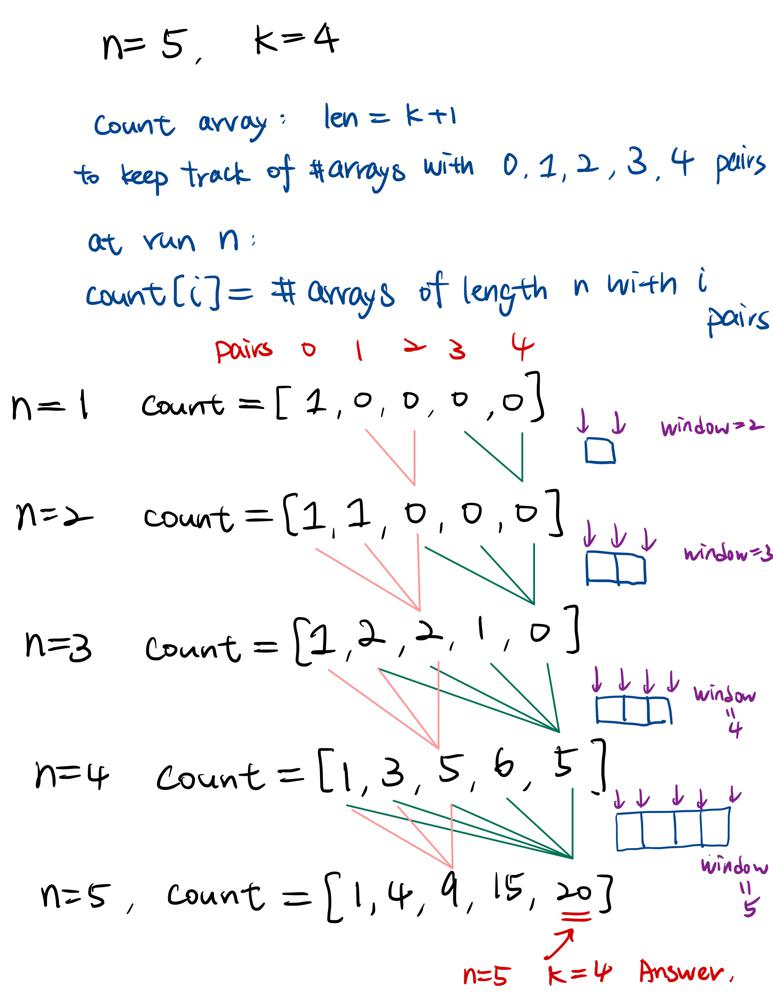 n=5, k=4
count array: len = k+1
to keep track of #arrays with 0,1,2,3,4 pairs
at run n:
count[i]= # arrays of length n with i
pairs
Pairs 0 1 2 3 4
n=1 count=[1,0,0,0,0]
window=2
n=2 count=[1,1,0,0,0]
window=3
n=3 count=[1,2,2,1,0]
window
=
4
n=4 count=[1,3,5,6,5]
window
=
5
n=5, count=[1,4,9,15,20]
n=5 k=4 Answer.